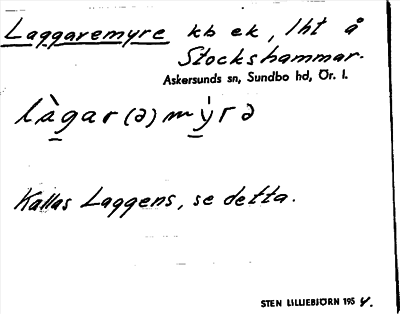 Laggaremyre kb ek, lht å
Stockshammar.
Askersunds sn, Sundbo hd, Ör. l.
làgar(ə)mýrə
Kallas Laggens, se detta.
STEN LILLIEBJÖRN 1954.